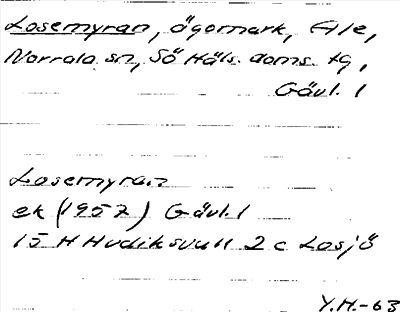 Losemyran, ägomark, Ale,
Norrala sn, Sö Häls. doms. tg,
Gävl. l
Losemyran
ek (1957) Gävl. l
15 H Hudiksvall 2 c Losjö
Y.H.-63